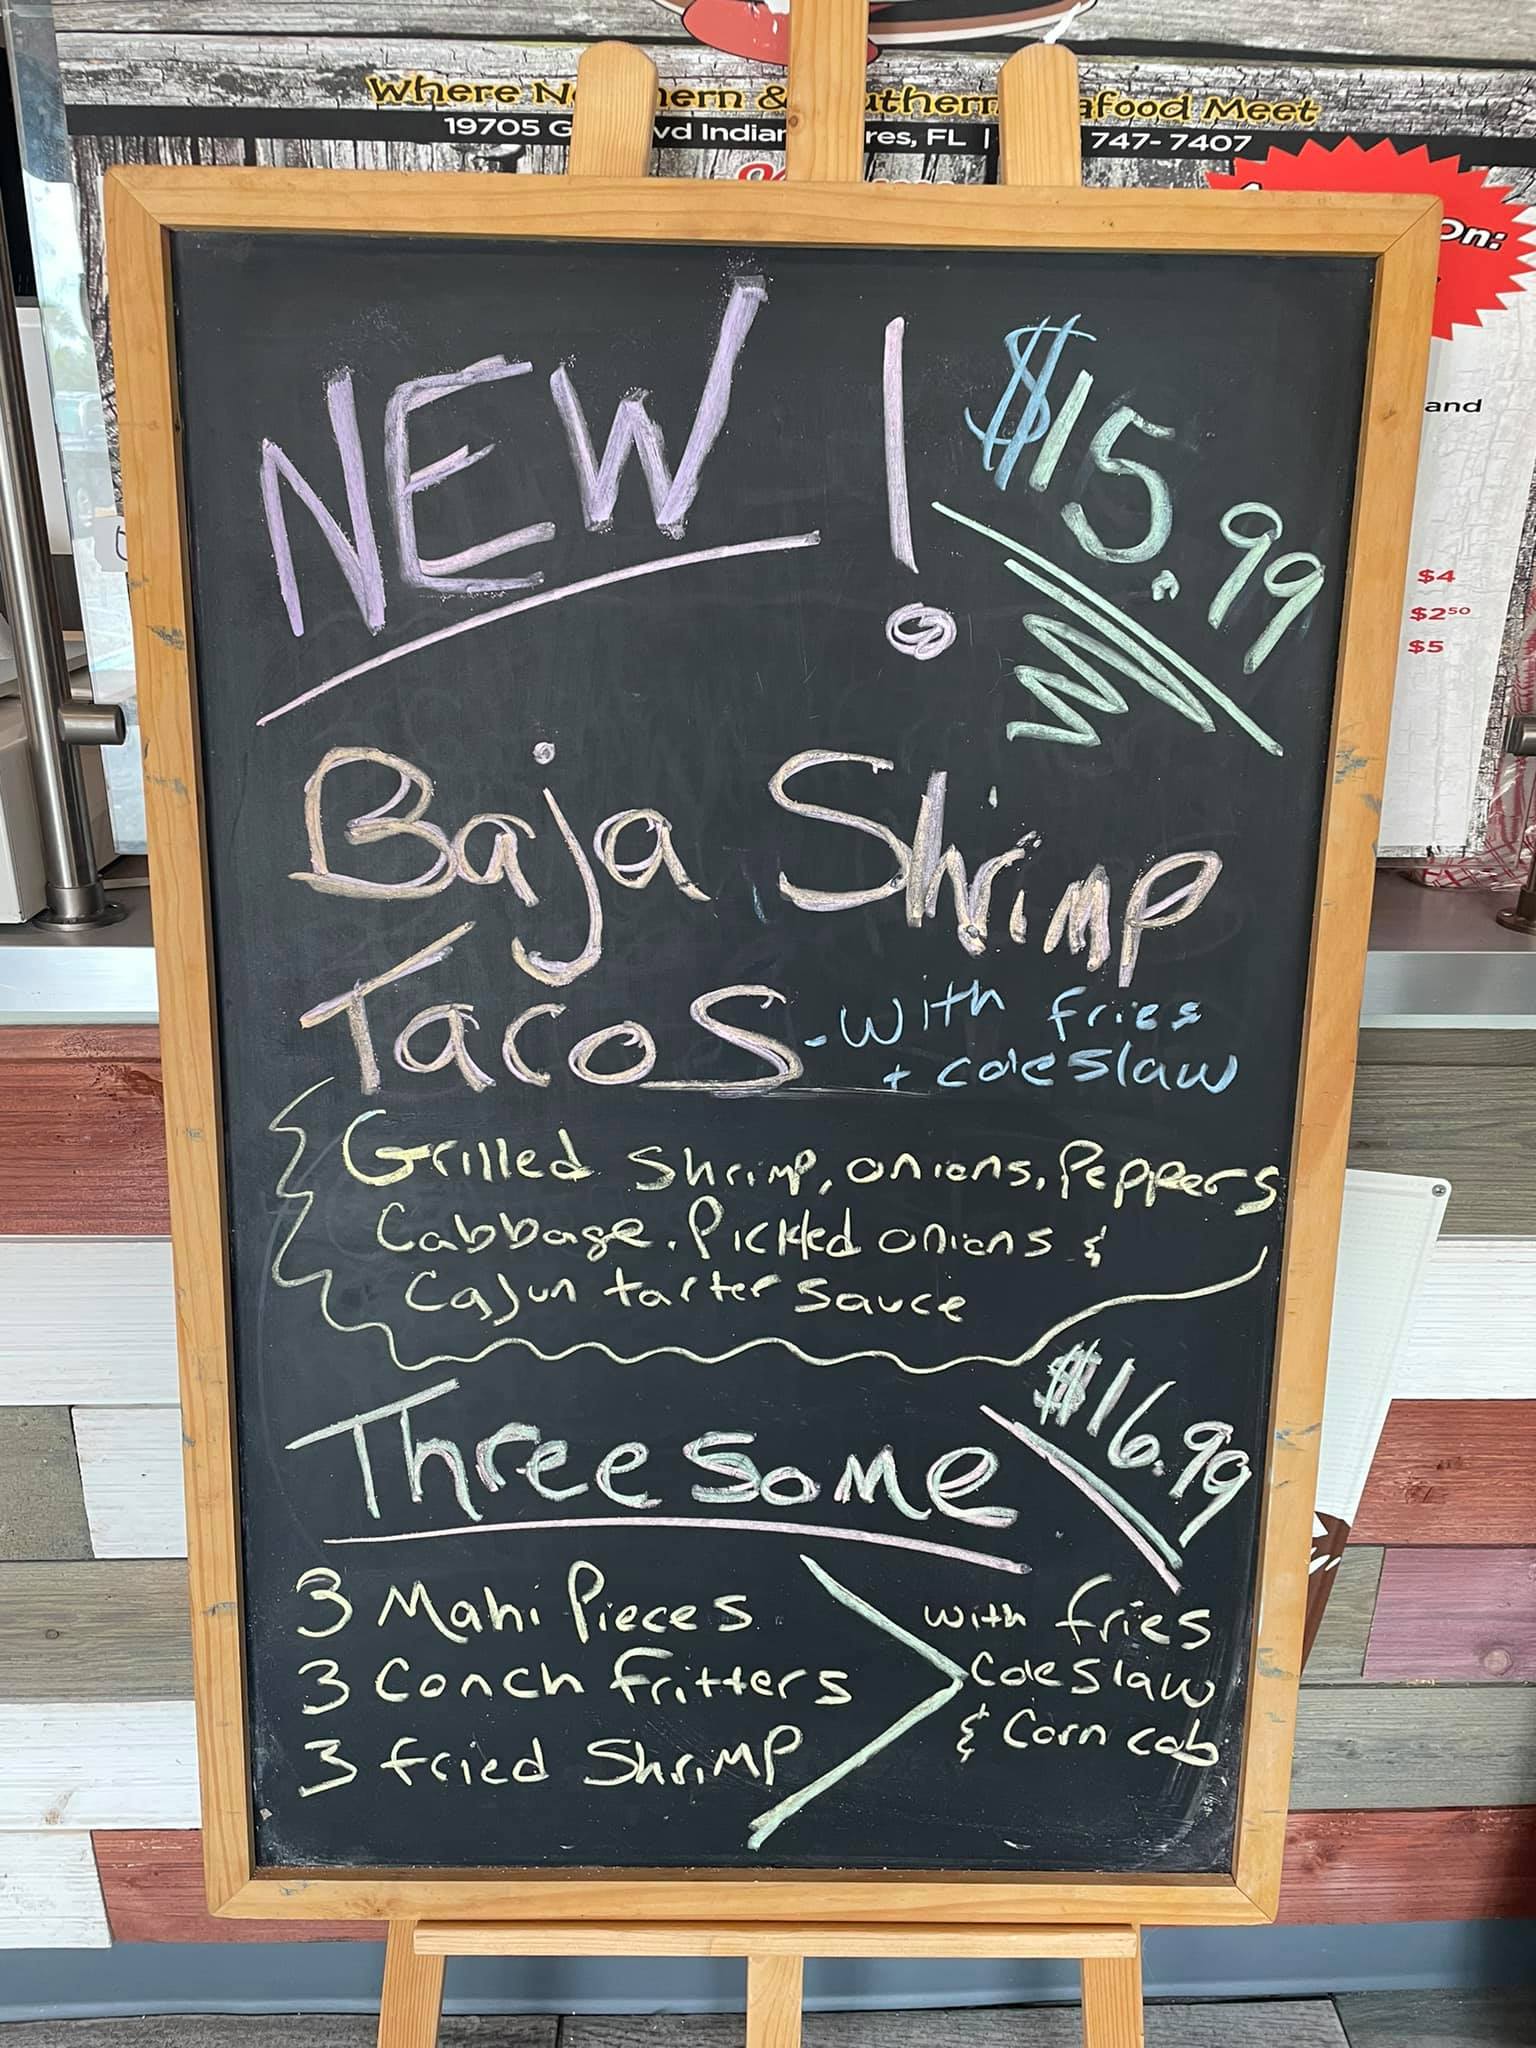 Where & Seafood Meet
19705 FL | 747-7407
On:
and
$4
$2⁵⁰
$5
NEW!
$15.99
Baja Shrimp
Tacos - with fries
+ coleslaw
Grilled Shrimp, onions, Peppers
Cabbage, Pickled onions &
Cajun tarter sauce
Threesome
$16.99
3 Mahi Pieces
3 Conch fritters
3 fried Shrimp
with fries
Coleslaw
& Corn cob